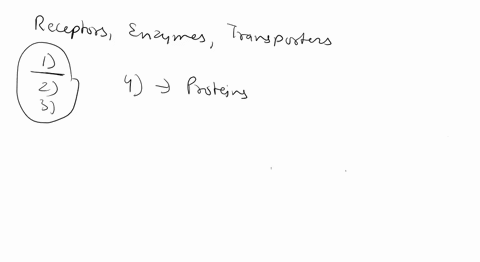 Receptors, Enzymes, Transporters
1)
2)
3)
4) → Proteins